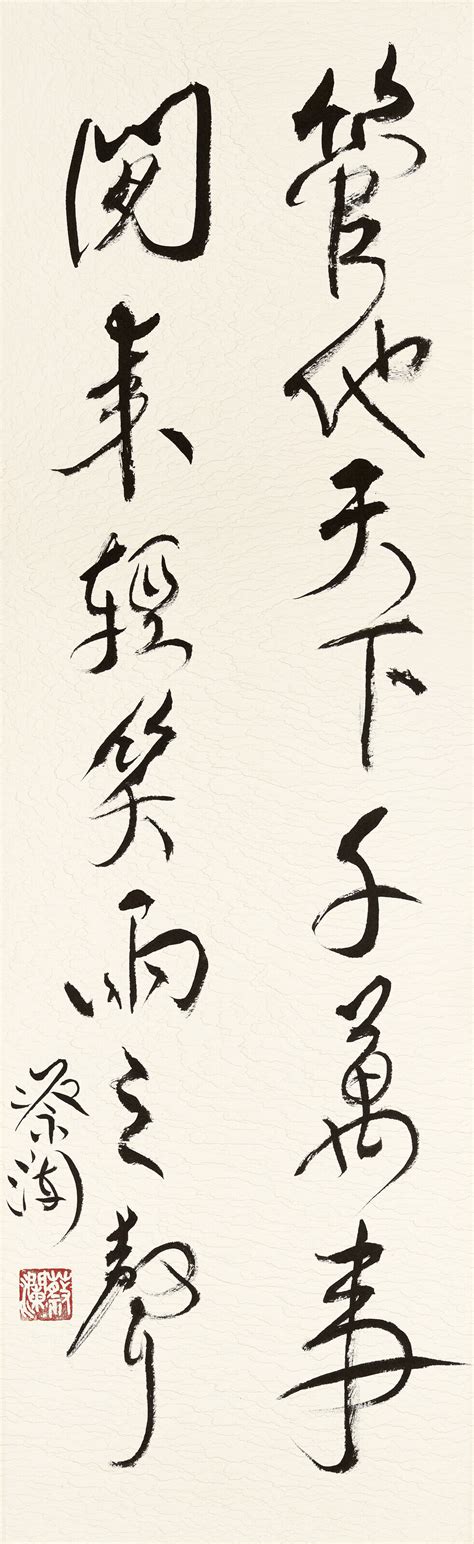 管他天下千萬事
閒來輕笑兩三聲
蔡瀾
蔡瀾